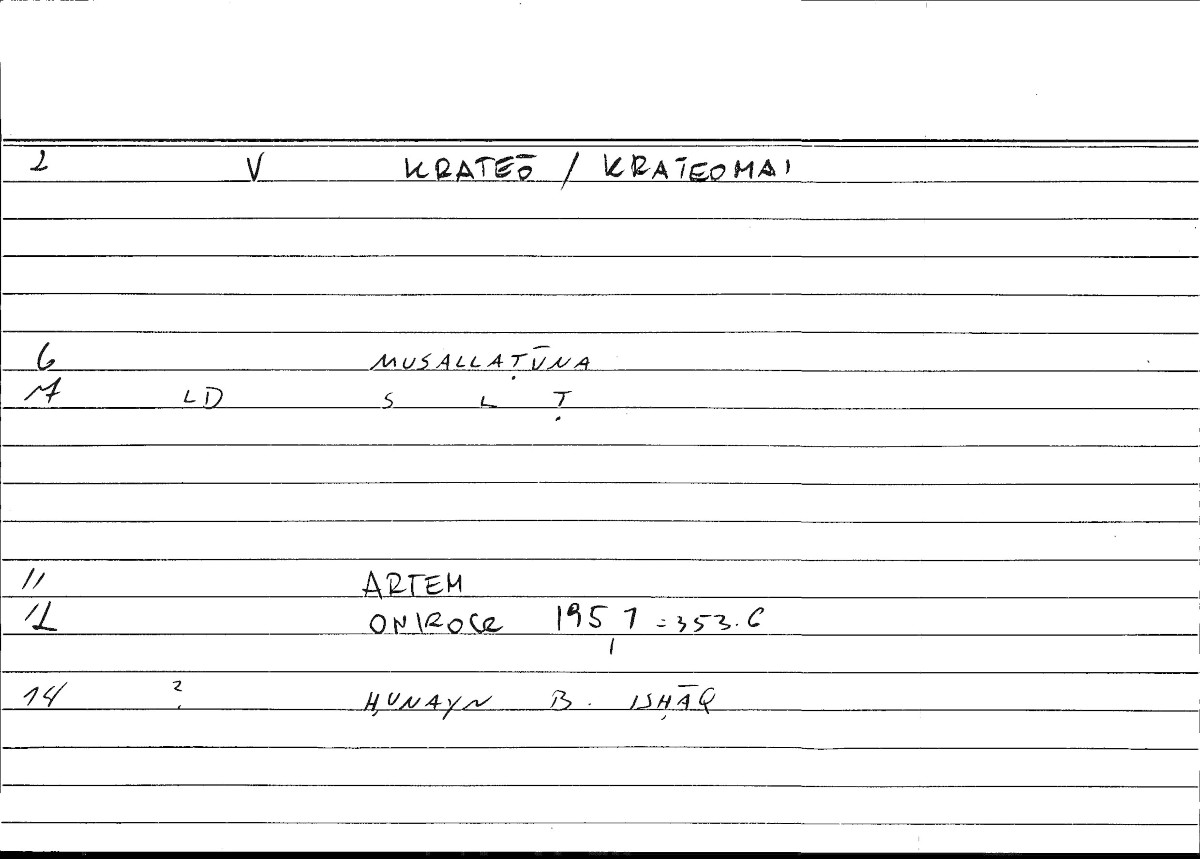 2 V KRATEŌ / KRATEOMAI
6 MUSALLAṬŪNA
7 LD S L Ṭ
11 ARTEM
12 ONIROCR 195,1 = 353.6
14 ? ḤUNAYN B. ISḤĀQ